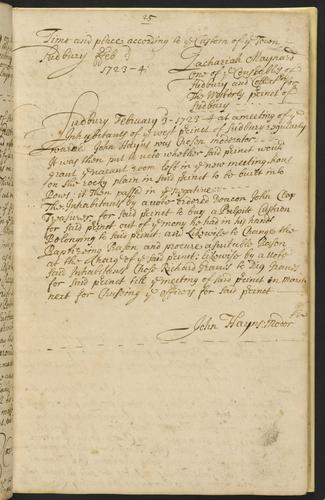 25
Time and place according to ye Custom of ye Town
Sudbury Feb 3
1723-4
Zachariah Maynard
one of ye Constables of
Sudbury and Collector
The Westerly precinct of
Sudbury
Sudbury February 3-1723-4 at a meeting of ye
Inhabetants of ye west preinct of Sudbury regularly
warnd John Hayns was Chosen moderator
It was then put to vote whether said preinct would
grant ye vacant room left in ye new meeting hous
on the rocky plain in said preinct to be built into
Pews: it Then passed in ye negative
The Inhabitants by a vote ordered Deacon John Clap
Treasurer for said preinct to buy a Pulpit Cushion
for said preinct out of ye mony he had in his hands
Belonging to said preinct: and Likewise to Change the
Baptizing Bason and procure a sutable Bason
at the Charge of ye said preinct: likewise by a vote
said Inhabitants Chose Richard Graves to Dig Graves
for said preinct till ye meeting of said preinct in March
next for Chusing ye officers for said preinct
John Hayns: Moder